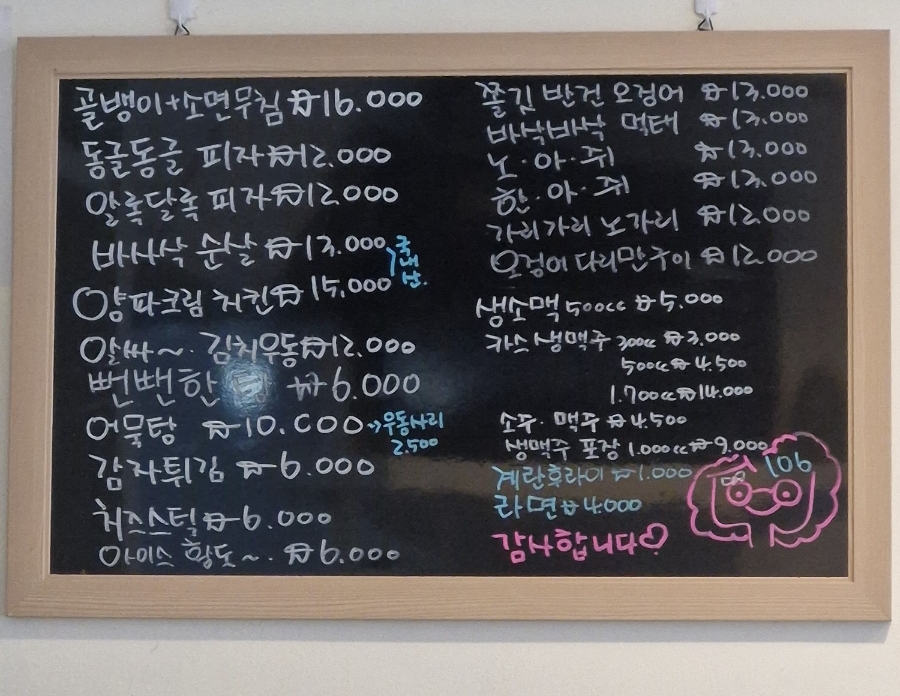 골뱅이+소면무침 ₩16.000
동글동글 피자 ₩12.000
알록달록 피자 ₩12.000
바사삭 순살 ₩13.000
양파크림 치킨 ₩15,000
국내산.
알싸~. 김치우동 ₩12.000
뻔뻔한 ₩6.000
어묵탕 ₩10.000 →우동사리
2.500
감자튀김 ₩6.000
치즈스틱 ₩6.000
아이스 황도~. ₩6.000
쫄깃 반건 오징어 ₩13.000
바삭바삭 먹태 ₩13.000
노.아.쥐 ₩13.000
한.아.쥐 ₩13.000
가리가리 노가리 ₩12.000
오징어 다리만 구이 ₩12.000
생소맥 500cc ₩5.000
카스 생맥주 300cc ₩3.000
500cc ₩4.500
1.700cc ₩14.000
소주.맥주 ₩4.500
생맥주 포장 1.000cc ₩9.000
계란후라이 ₩1.000
라면 ₩4.000
감사합니다♡
106